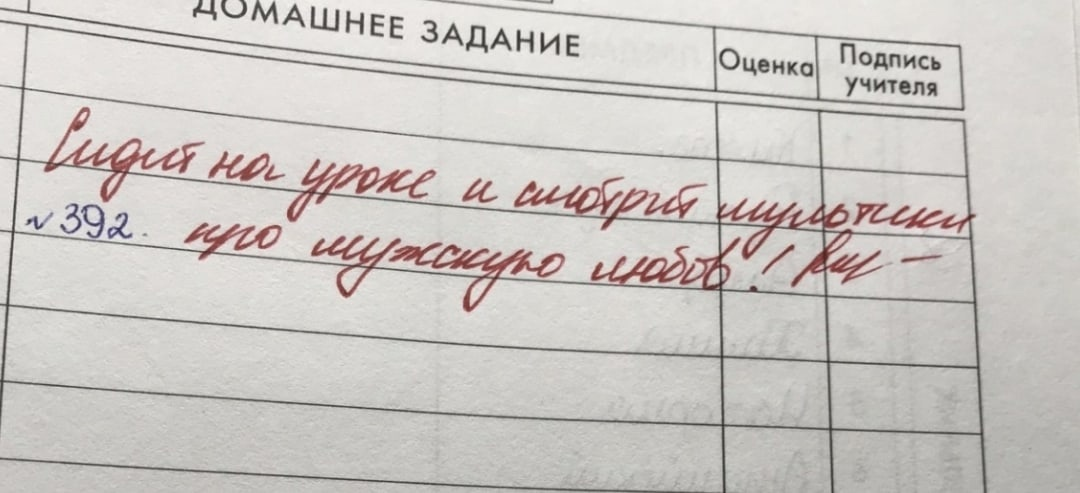 ДОМАШНЕЕ ЗАДАНИЕ
Оценка
Подпись
учителя
Сидит на уроке и смотрит мультики
№392. про мужскую любов!